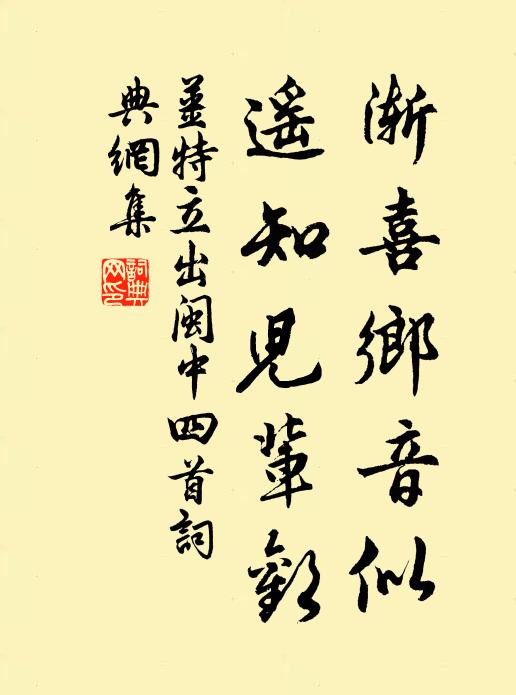 漸喜鄉音似
遥知兒輩歡
姜特立出閩中四首詞
典網集
詞典網印